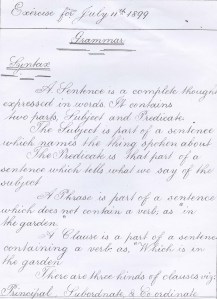 Exercise for July 11th 1899
Grammar
Syntax
A Sentence is a complete thought
expressed in words. It contains
two parts, Subject and Predicate.
The Subject is part of a sentence
which names the thing spoken about
The Predicate is that part of a
sentence which tells what we say of
the subject
A Phrase is part of a sentence
which does not contain a verb, as in
the garden.
A Clause is a part of a sentence
containing a verb as, "Which is in
the garden
There are three kinds of clauses viz,
Principal, Subordnate, & Co ordinate